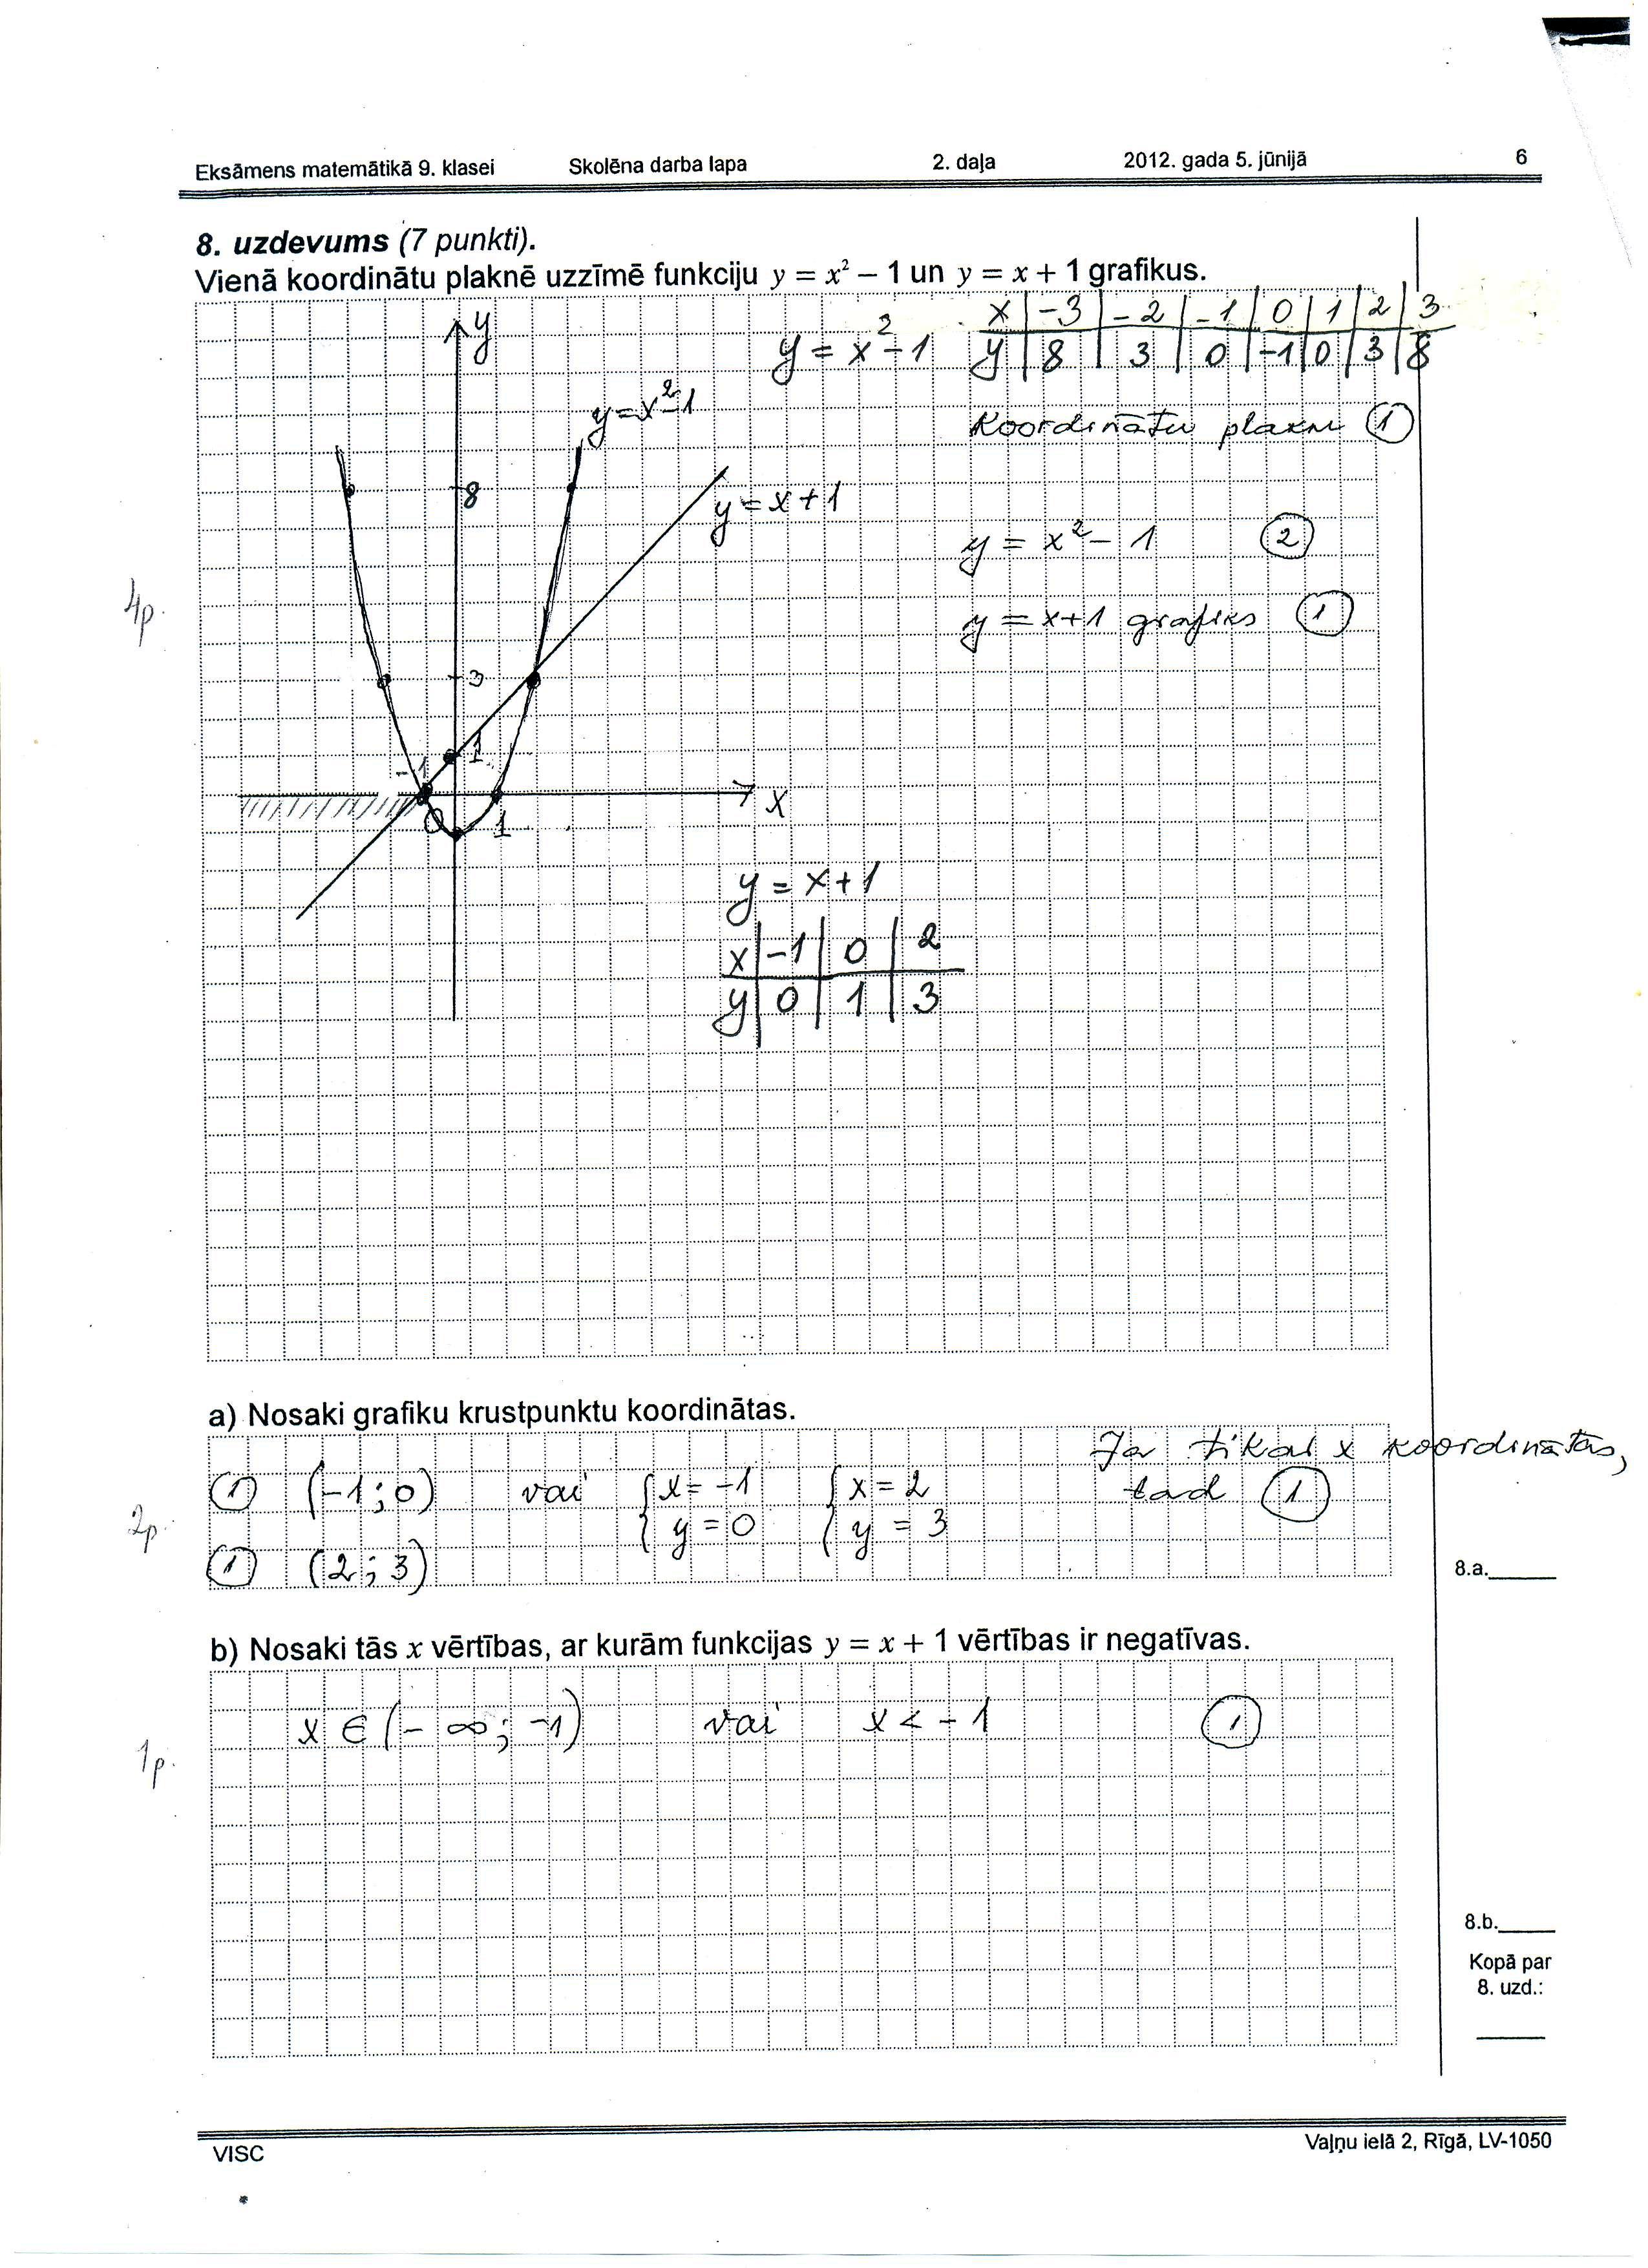 Eksāmens matemātikā 9. klasei Skolēna darba lapa 2. daļa 2012. gada 5. jūnijā 6
8. uzdevums (7 punkti).
Vienā koordinātu plaknē uzzīmē funkciju y = x² – 1 un y = x + 1 grafikus.
y = x² - 1
x | -3 | -2 | -1 | 0 | 1 | 2 | 3
y | 8 | 3 | 0 | -1 | 0 | 3 | 8
y
y = x² - 1
Koordinātu plakni 1
8
y = x + 1
y = x² - 1 2
4p.
y = x+1 grafiks 1
3
1
-1
x
0 1
y = x + 1
x | -1 | 0 | 2
y | 0 | 1 | 3
a) Nosaki grafiku krustpunktu koordinātas.
Ja tikai x koordinātas,
1 (-1; 0) vai { x = -1 { x = 2 tad 1
y = 0 y = 3
2p.
1 (2; 3)
8.a.
b) Nosaki tās x vērtības, ar kurām funkcijas y = x + 1 vērtības ir negatīvas.
x ∈ (- ∞; -1) vai x < - 1 1
1p.
8.b.
Kopā par
8. uzd.:
VISC Vaļņu ielā 2, Rīgā, LV-1050